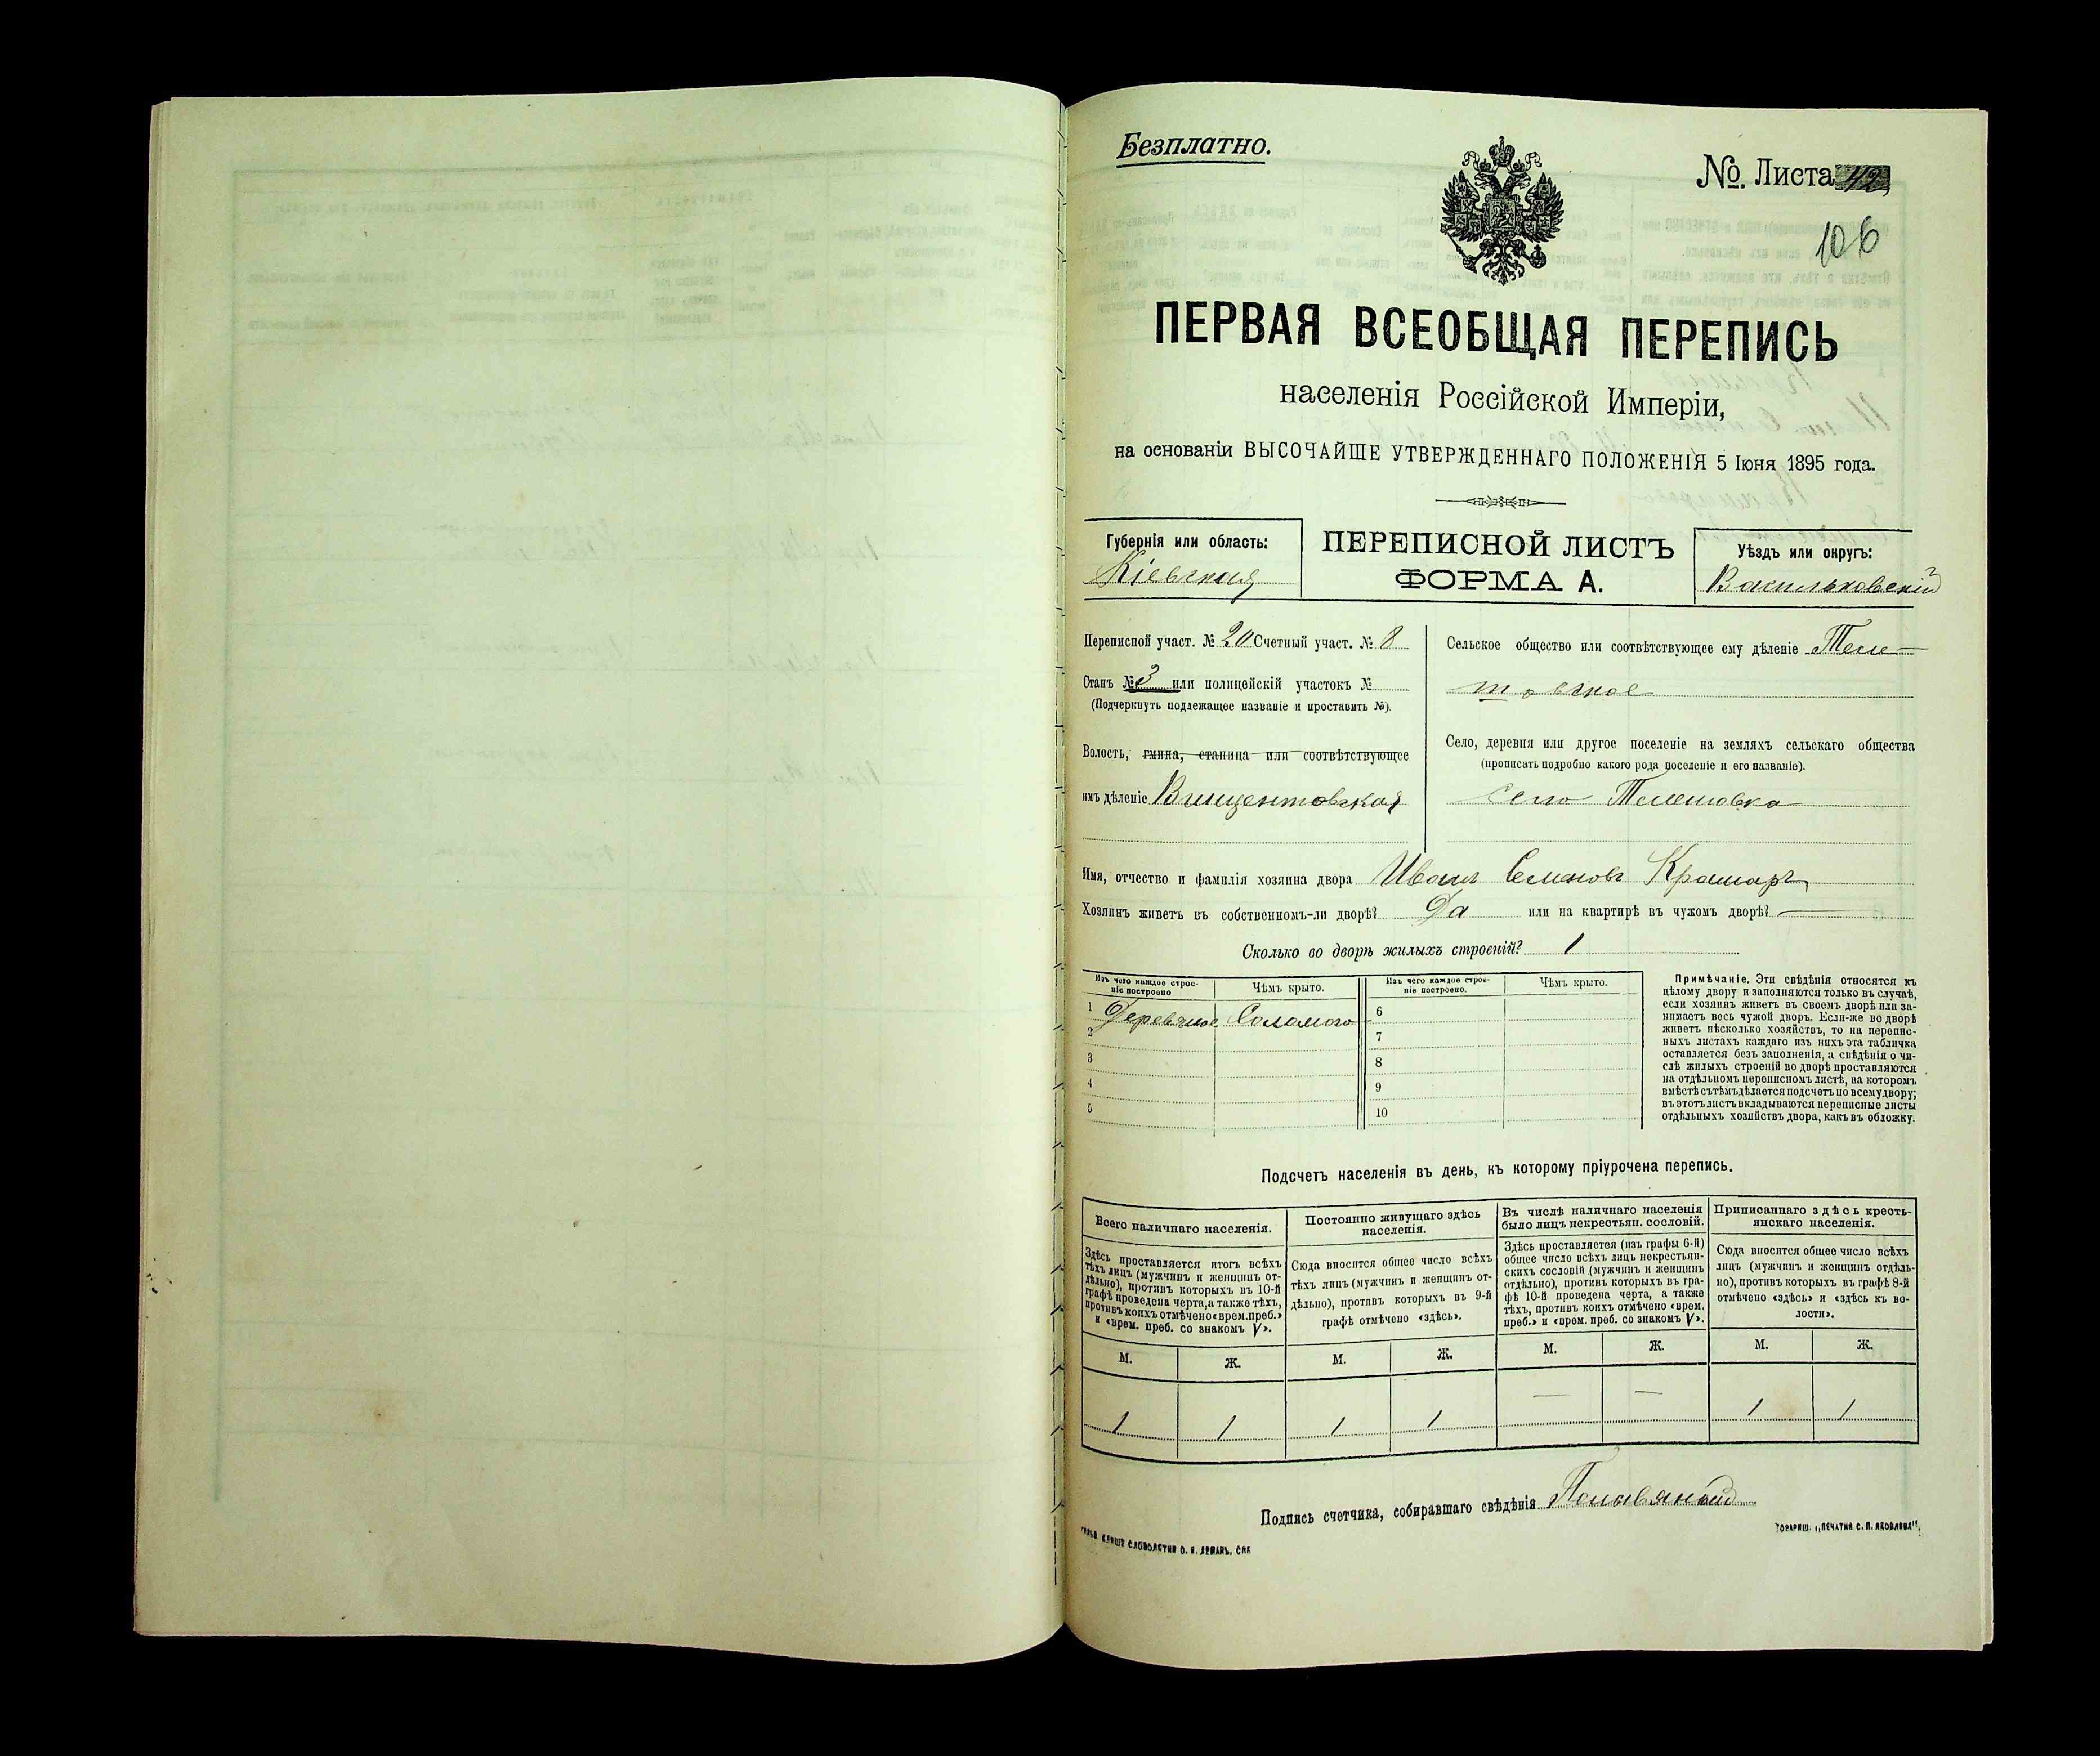 Безплатно.
№ Листа 42
106
ПЕРВАЯ ВСЕОБЩАЯ ПЕРЕПИСЬ
населенія Россійской Имперіи,
на основаніи ВЫСОЧАЙШЕ УТВЕРЖДЕННАГО ПОЛОЖЕНІЯ 5 Іюня 1895 года.
Губернія или область:
Кіевская
ПЕРЕПИСНОЙ ЛИСТЪ
ФОРМА А.
Уѣздъ или округъ:
Васильковскій
Переписной участ. № 20 Счетный участ. № 8
Станъ № 3 или полицейскій участокъ №
(Подчеркнуть подлежащее названіе и проставить №).
Волость, гмина, станица или соотвѣтствующее
имъ дѣленіе Винцентовская
Сельское общество или соотвѣтствующее ему дѣленіе Теле-
шовское
Село, деревня или другое поселеніе на земляхъ сельскаго общества
(прописать подробно какого рода поселеніе и его названіе).
село Телешовка
Имя, отчество и фамилія хозяина двора Иванъ Семеновъ Крамаръ
Хозяинъ живетъ въ собственномъ-ли дворѣ? Да или на квартирѣ въ чужомъ дворѣ? —
Сколько во дворѣ жилыхъ строеній? 1
Изъ чего каждое строе-
ніе построено
Чѣмъ крыто.
Изъ чего каждое строе-
ніе построено.
Чѣмъ крыто.
1 Деревяное Соломою
2
3
4
5
6
7
8
9
10
Примѣчаніе. Эти свѣдѣнія относятся къ
цѣлому двору и заполняются только въ случаѣ,
если хозяинъ живетъ въ своемъ дворѣ или за-
нимаетъ весь чужой дворъ. Если-же во дворѣ
живетъ нѣсколько хозяйствъ, то на перепис-
ныхъ листахъ каждаго изъ нихъ эта табличка
оставляется безъ заполненія, а свѣдѣнія о чи-
слѣ жилыхъ строеній во дворѣ проставляются
на отдѣльномъ переписномъ листѣ, на которомъ
вмѣстѣ съ тѣмъ дѣлается подсчетъ по всему двору;
въ этотъ листъ вкладываются переписные листы
отдѣльныхъ хозяйствъ двора, какъ въ обложку.
Подсчетъ населенія въ день, къ которому пріурочена перепись.
Всего наличнаго населенія.
Здѣсь проставляется итогъ всѣхъ
тѣхъ лицъ (мужчинъ и женщинъ от-
дѣльно), противъ которыхъ въ 10-й
графѣ проведена черта, а также тѣхъ,
противъ коихъ отмѣчено «врем. преб.»
и «врем. преб. со знакомъ V».
М. Ж.
1 1
Постоянно живущаго здѣсь
населенія.
Сюда вносится общее число всѣхъ
тѣхъ лицъ (мужчинъ и женщинъ от-
дѣльно), противъ которыхъ въ 9-й
графѣ отмѣчено «здѣсь».
М. Ж.
1 1
Въ числѣ наличнаго населенія
было лицъ некрестьян. сословій.
Здѣсь проставляется (изъ графы 6-й)
общее число всѣхъ лицъ некрестьян-
скихъ сословій (мужчинъ и женщинъ
отдѣльно), противъ которыхъ въ гра-
фѣ 10-й проведена черта, а также
тѣхъ, противъ коихъ отмѣчено «врем.
преб.» и «врем. преб. со знакомъ V».
М. Ж.
— —
Приписаннаго здѣсь кресть-
янскаго населенія.
Сюда вносится общее число всѣхъ
лицъ (мужчинъ и женщинъ отдѣль-
но), противъ которыхъ въ графѣ 8-й
отмѣчено «здѣсь» и «здѣсь къ во-
лости».
М. Ж.
1 1
Подпись счетчика, собиравшаго свѣдѣнія
ТОВАРИЩ. „ПЕЧАТНЯ С. П. ЯКОВЛЕВА“.